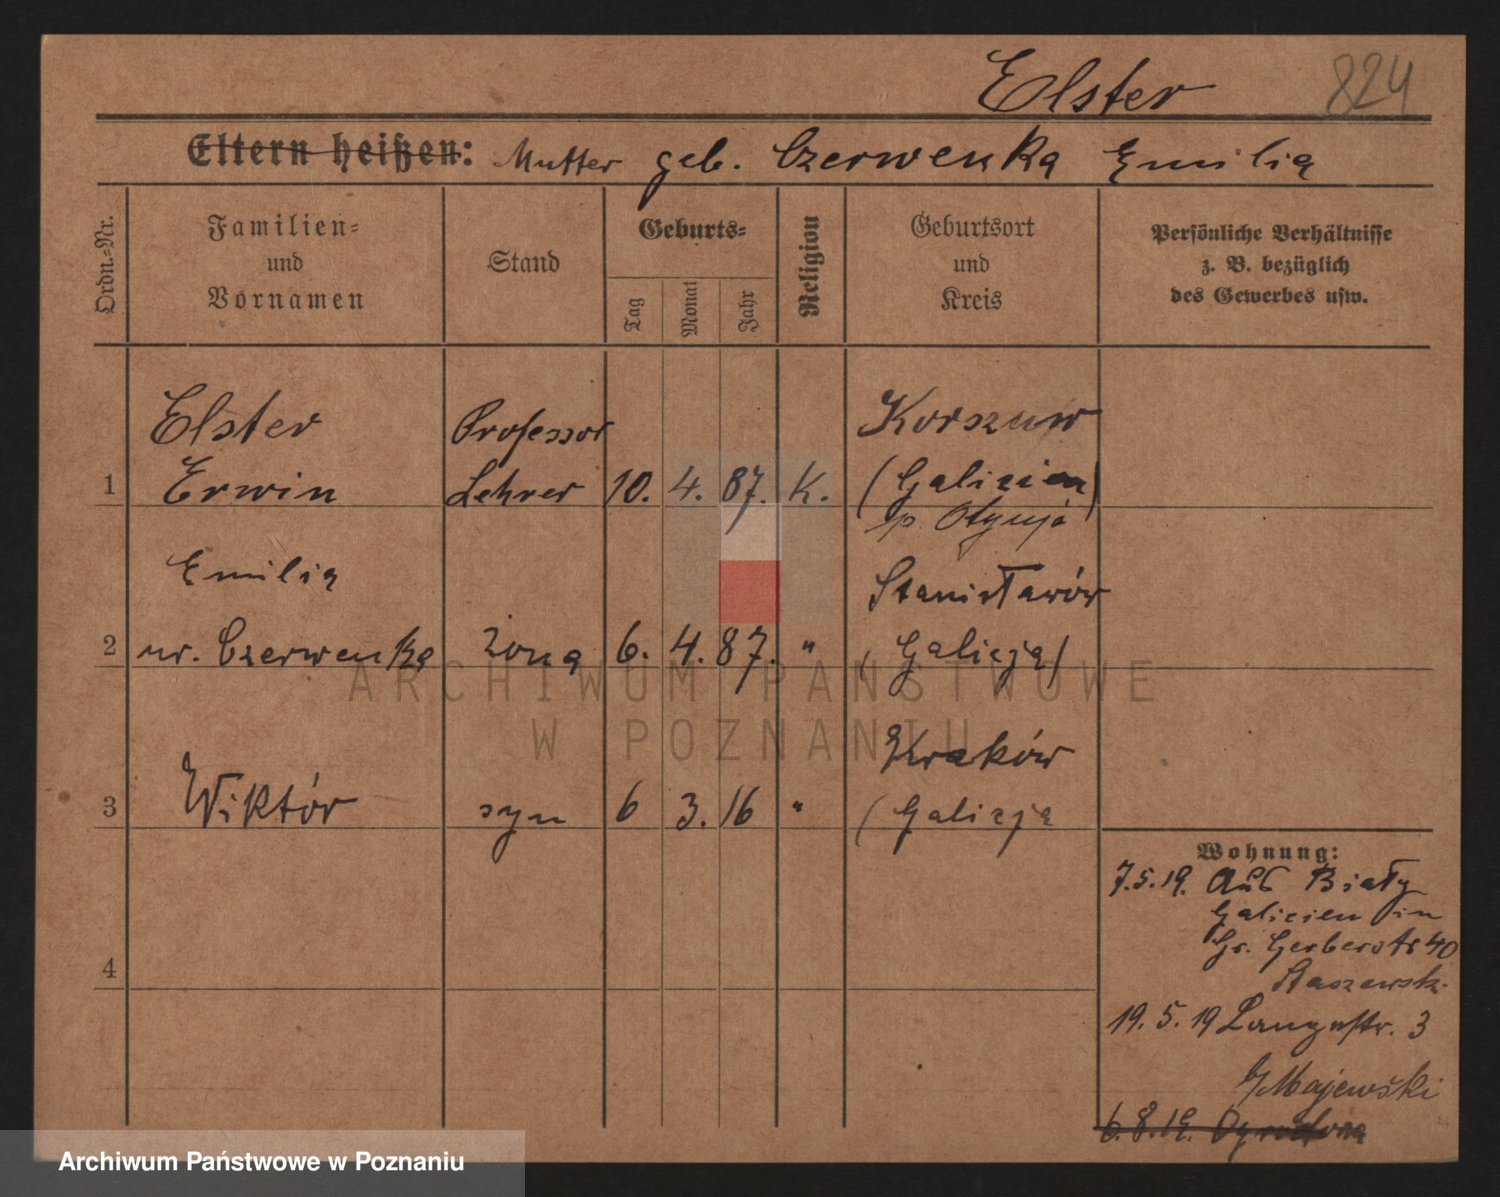 Elster 824
Eltern heißen: Mutter geb. Czerwenka Emilia
Ordn.-Nr.
Familien-
und
Vornamen
Stand
Geburts-
Tag
Monat
Jahr
Religion
Geburtsort
und
Kreis
Persönliche Verhältnisse
z. B. bezüglich
des Gewerbes usw.
Elster Professor Korszuw
1 Erwin Lehrer 10. 4. 87. K. (Galicien)
p. Otynja
Emilia Stanisławów
2 ur. Czerwenka żona 6. 4. 87. " (Galicja)
Kraków
3 Wiktór syn 6 3. 16 " (Galicja
4
Wohnung:
7.5.19. Aus Biały
Galicien in
Gr. Gerberstr 40
Staszewsk.
19.5.19 Langestr. 3
Majewski
6.8.19. Ogrodowa
ARCHIWUM PAŃSTWOWE
W POZNANIU
Archiwum Państwowe w Poznaniu